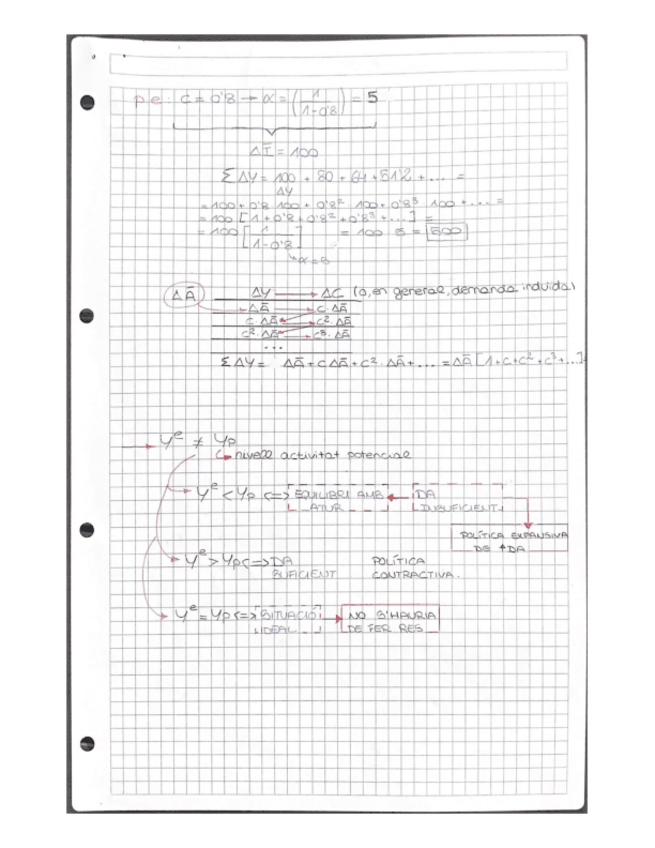 p.e: c = 0'8 → α = (1/1-0'8) = 5
ΔĪ = 100
ΣΔY = 100 + 80 + 64 + 51'2 + ... =
ΔY
= 100 + 0'8 100 + 0'8² 100 + 0'8³ 100 + ... =
= 100 [1 + 0'8 + 0'8² + 0'8³ + ...] =
= 100 [1/1-0'8] = 100 5 = 500
α = 5
ΔĀ ΔY → ΔC (o, en general, demanda induida)
ΔĀ → c·ΔĀ
c·ΔĀ c²·ΔĀ
c²·ΔĀ → c³·ΔĀ
...
ΣΔY = ΔĀ + cΔĀ + c²·ΔĀ + ... = ΔĀ [1 + c + c² + c³ + ...]
→ Yᵉ ≠ Yp
↳ nivell activitat potencial
Yᵉ < Yp <=> EQUILIBRI AMB ← DA
ATUR INSUFICIENT
POLÍTICA EXPANSIVA
DE ↑DA
Yᵉ > Yp <=> DA POLÍTICA
SUFICIENT CONTRACTIVA.
Yᵉ = Yp <=> SITUACIÓ → NO S'HAURIA
IDEAL DE FER RES